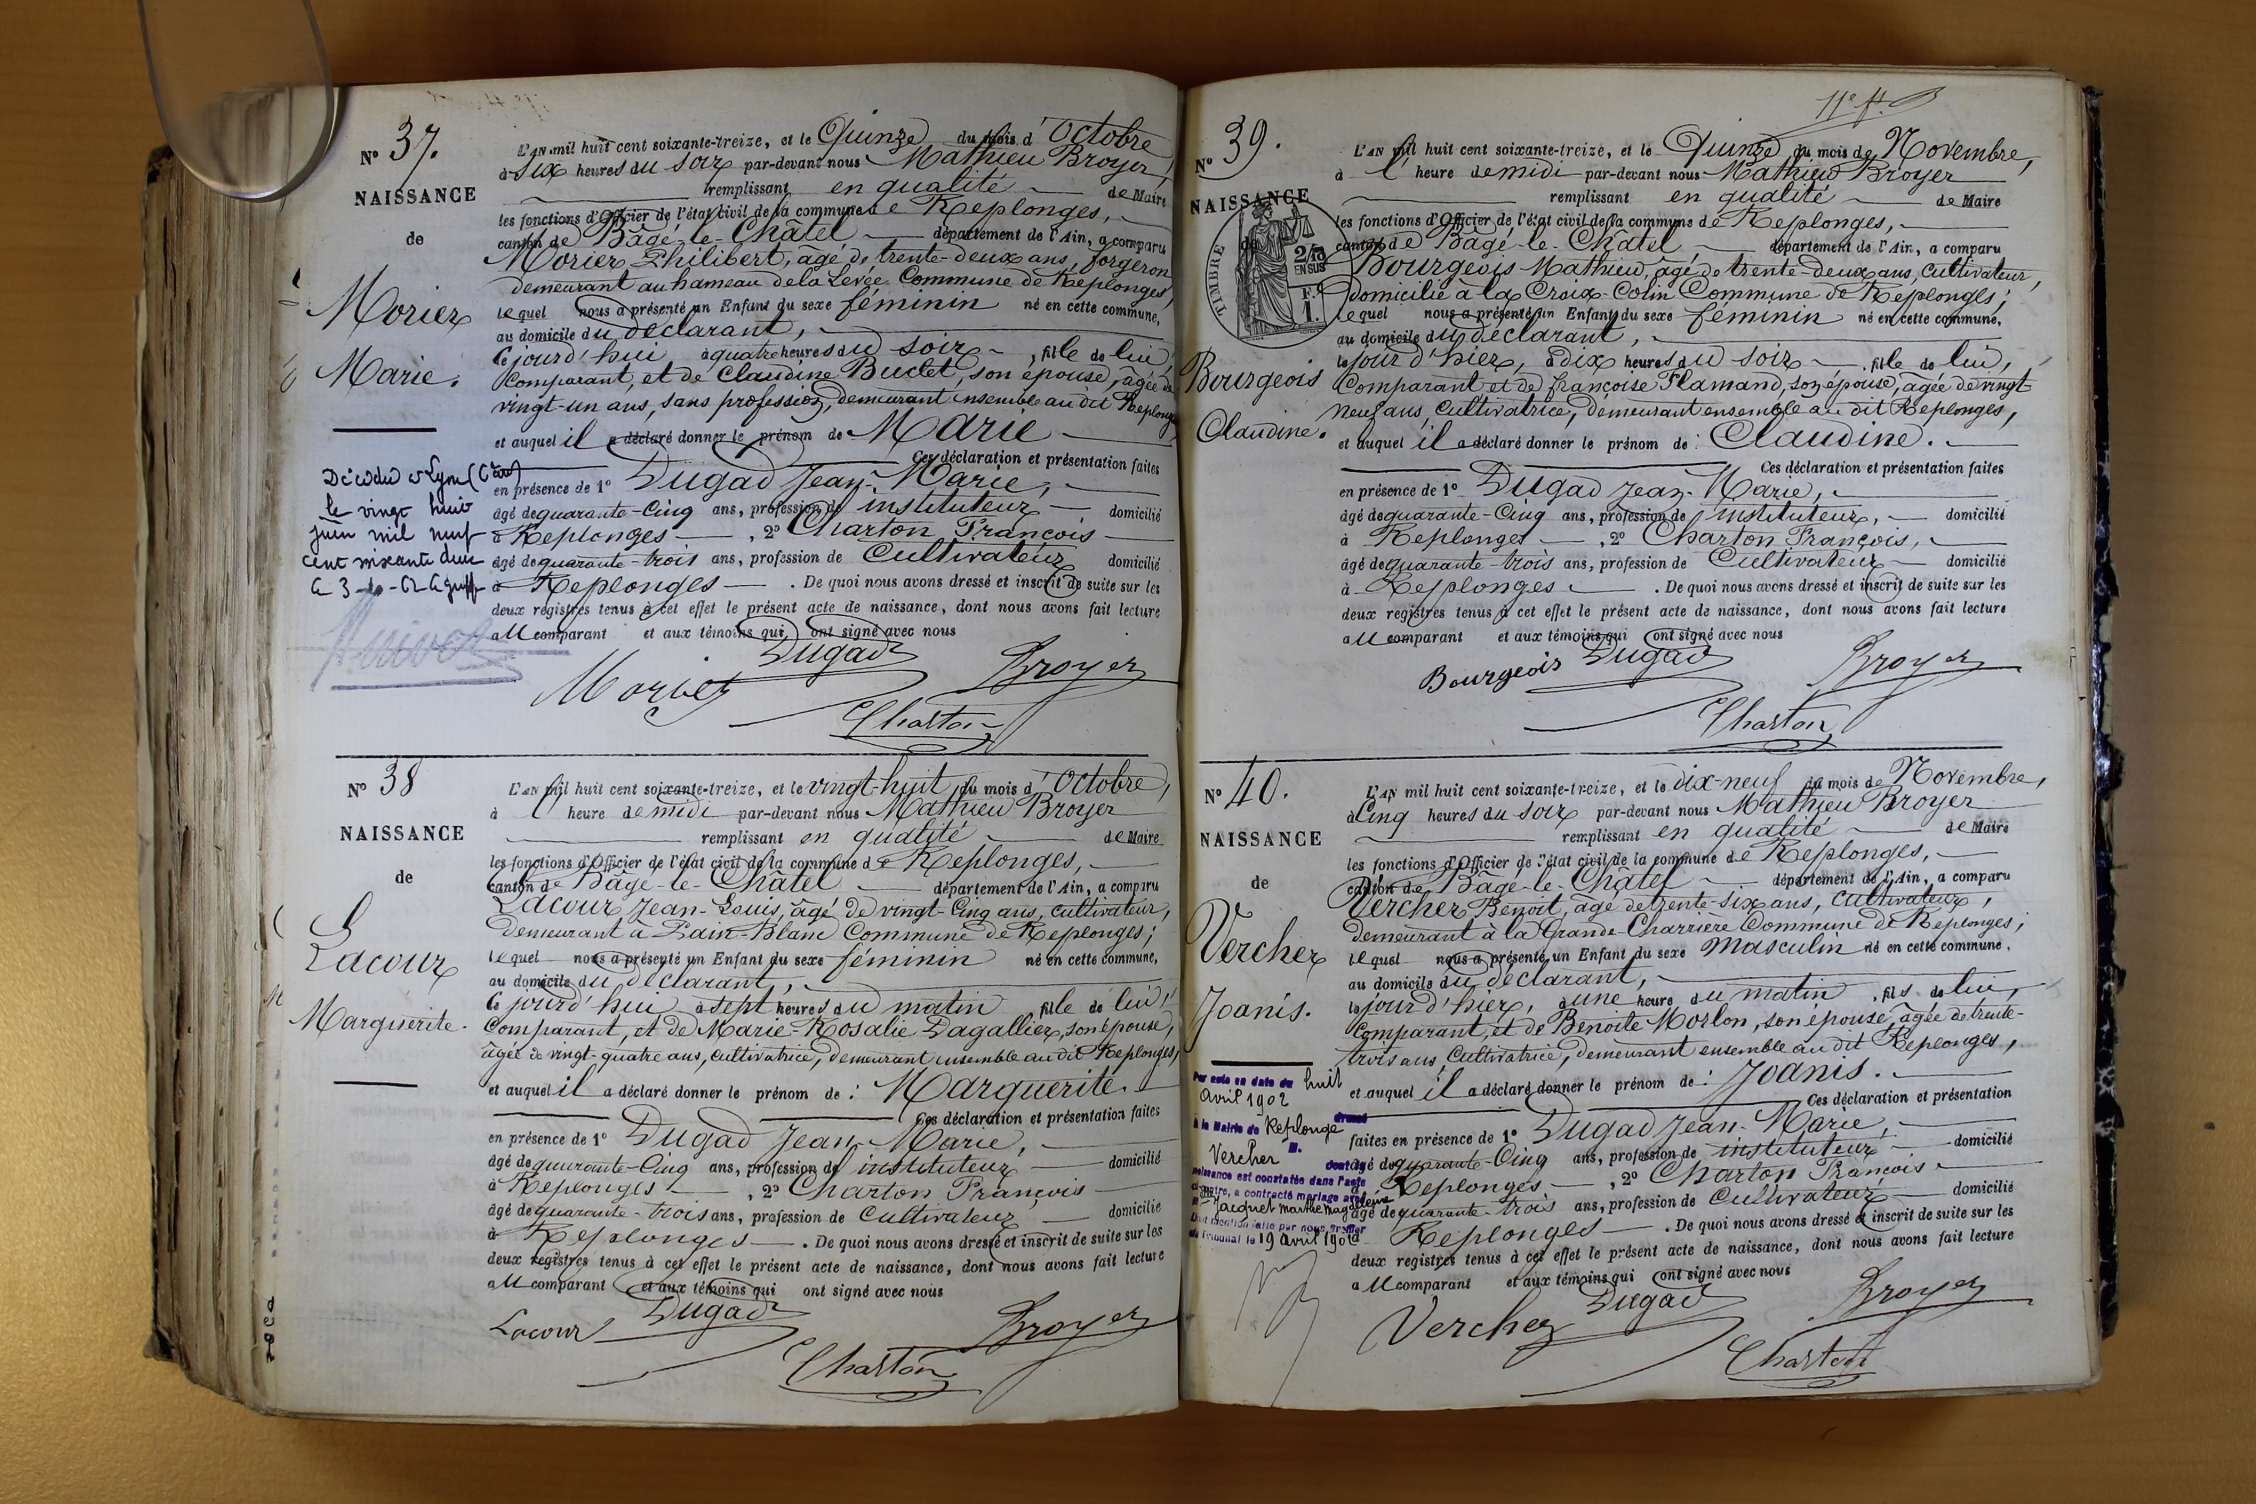 N° 37.
NAISSANCE
de
Morier
Marie.
L'AN mil huit cent soixante-treize, et le Quinze du mois d'Octobre
à six heures du soir par-devant nous Mathieu Broyer,
remplissant en qualité de Maire
les fonctions d'Officier de l'état civil de la commune de Replonges,
canton de Bâgé-le-Châtel département de l'Ain, a comparu
Morier Philibert, âgé de trente-deux ans, forgeron
demeurant au hameau de la Levée Commune de Replonges,
lequel nous a présenté un Enfant du sexe féminin né en cette commune,
au domicile du déclarant,
Ce jourd'hui à quatre heures du soir, fille de lui,
Comparant, et de Claudine Buclet, son épouse, âgée de
vingt-un ans, sans profession, demeurant ensemble au dit Replonges
et auquel il a déclaré donner le prénom de Marie
Ces déclaration et présentation faites
en présence de 1° Dugad Jean-Marie,
âgé de quarante-Cinq ans, profession de instituteur domicilié
à Replonges, 2° Charton François
âgé de quarante-trois ans, profession de Cultivateur domicilié
à Replonges. De quoi nous avons dressé et inscrit de suite sur les
deux registres tenus à cet effet le présent acte de naissance, dont nous avons fait lecture
au comparant et aux témoins qui ont signé avec nous
Dugad
Morier
Broyer
Charton
Décédée à Lyon
le vingt huit
juin mil neuf
cent soixante deux
N° 38
NAISSANCE
de
Lacour
Marguerite.
L'AN mil huit cent soixante-treize, et le vingt-huit du mois d'Octobre,
à l' heure de midi par-devant nous Mathieu Broyer
remplissant en qualité de Maire
les fonctions d'Officier de l'état civil de la commune de Replonges,
canton de Bâgé-le-Châtel département de l'Ain, a comparu
Lacour Jean-Louis, âgé de vingt-Cinq ans, cultivateur,
demeurant à Pain-Blanc Commune de Replonges;
lequel nous a présenté un Enfant du sexe féminin né en cette commune,
au domicile du déclarant,
Ce jourd'hui à sept heures du matin fille de lui,
Comparant, et de Marie-Rosalie Dagallier, son épouse,
âgée de vingt-quatre ans, cultivatrice, demeurant ensemble au dit Replonges,
et auquel il a déclaré donner le prénom de : Marguerite.
Ces déclaration et présentation faites
en présence de 1° Dugad Jean-Marie,
âgé de quarante-Cinq ans, profession de instituteur domicilié
à Replonges, 2° Charton François
âgé de quarante-trois ans, profession de Cultivateur domicilié
à Replonges. De quoi nous avons dressé et inscrit de suite sur les
deux registres tenus à cet effet le présent acte de naissance, dont nous avons fait lecture
au comparant et aux témoins qui ont signé avec nous
Lacour
Dugad
Broyer
Charton
N° 39.
NAISSANCE
de
TIMBRE
2/10
EN SUS
F.
1.
Bourgeois
Claudine.
L'AN mil huit cent soixante-treize, et le Quinze du mois de Novembre,
à l' heure de midi par-devant nous Mathieu Broyer
remplissant en qualité de Maire
les fonctions d'Officier de l'état civil de la commune de Replonges,
canton de Bâgé-le-Châtel département de l'Ain, a comparu
Bourgeois Mathieu, âgé de trente-deux ans, Cultivateur,
domicilié à la Croix-Colin Commune de Replonges;
lequel nous a présenté un Enfant du sexe féminin né en cette commune,
au domicile du déclarant,
le jour d'hier, à dix heures du soir, fille de lui,
Comparant et de françoise Flamand, son épouse, âgée de vingt
neuf ans, Cultivatrice, demeurant ensemble au dit Replonges,
et auquel il a déclaré donner le prénom de : Claudine.
Ces déclaration et présentation faites
en présence de 1° Dugad Jean-Marie,
âgé de quarante-Cinq ans, profession de instituteur, domicilié
à Replonges, 2° Charton François,
âgé de quarante-trois ans, profession de Cultivateur domicilié
à Replonges. De quoi nous avons dressé et inscrit de suite sur les
deux registres tenus à cet effet le présent acte de naissance, dont nous avons fait lecture
au comparant et aux témoins qui ont signé avec nous
Bourgeois
Dugad
Broyer
Charton
N° 40.
NAISSANCE
de
Vercher
Joanis.
L'AN mil huit cent soixante-treize, et le dix-neuf du mois de Novembre,
à Cinq heures du soir par-devant nous Mathieu Broyer
remplissant en qualité de Maire
les fonctions d'Officier de l'état civil de la commune de Replonges,
canton de Bâgé-le-Châtel département de l'Ain, a comparu
Vercher Benoît, âgé de trente-six ans, cultivateur,
demeurant à la Grande-Charrière Commune de Replonges;
lequel nous a présenté un Enfant du sexe masculin né en cette commune,
au domicile du déclarant,
le jour d'hier, à une heure du matin, fils de lui,
Comparant, et de Benoite Morlon, son épouse, âgée de trente-
trois ans, Cultivatrice, demeurant ensemble au dit Replonges,
et auquel il a déclaré donner le prénom de : Joanis.
Ces déclaration et présentation
faites en présence de 1° Dugad Jean-Marie,
âgé de quarante-Cinq ans, profession de instituteur domicilié
à Replonges, 2° Charton François
âgé de quarante-trois ans, profession de Cultivateur domicilié
à Replonges. De quoi nous avons dressé et inscrit de suite sur les
deux registres tenus à cet effet le présent acte de naissance, dont nous avons fait lecture
au comparant et aux témoins qui ont signé avec nous
Vercher
Dugad
Broyer
Charton
Par acte en date du huit
Avril 1902 dressé
à la Mairie de Replonge
M. Vercher dont la
naissance est constatée dans l'acte
ci-contre, a contracté mariage avec
M Jacquet Marthe Magdeleine
Dont mention faite par nous, greffier
du Tribunal le 19 avril 1902